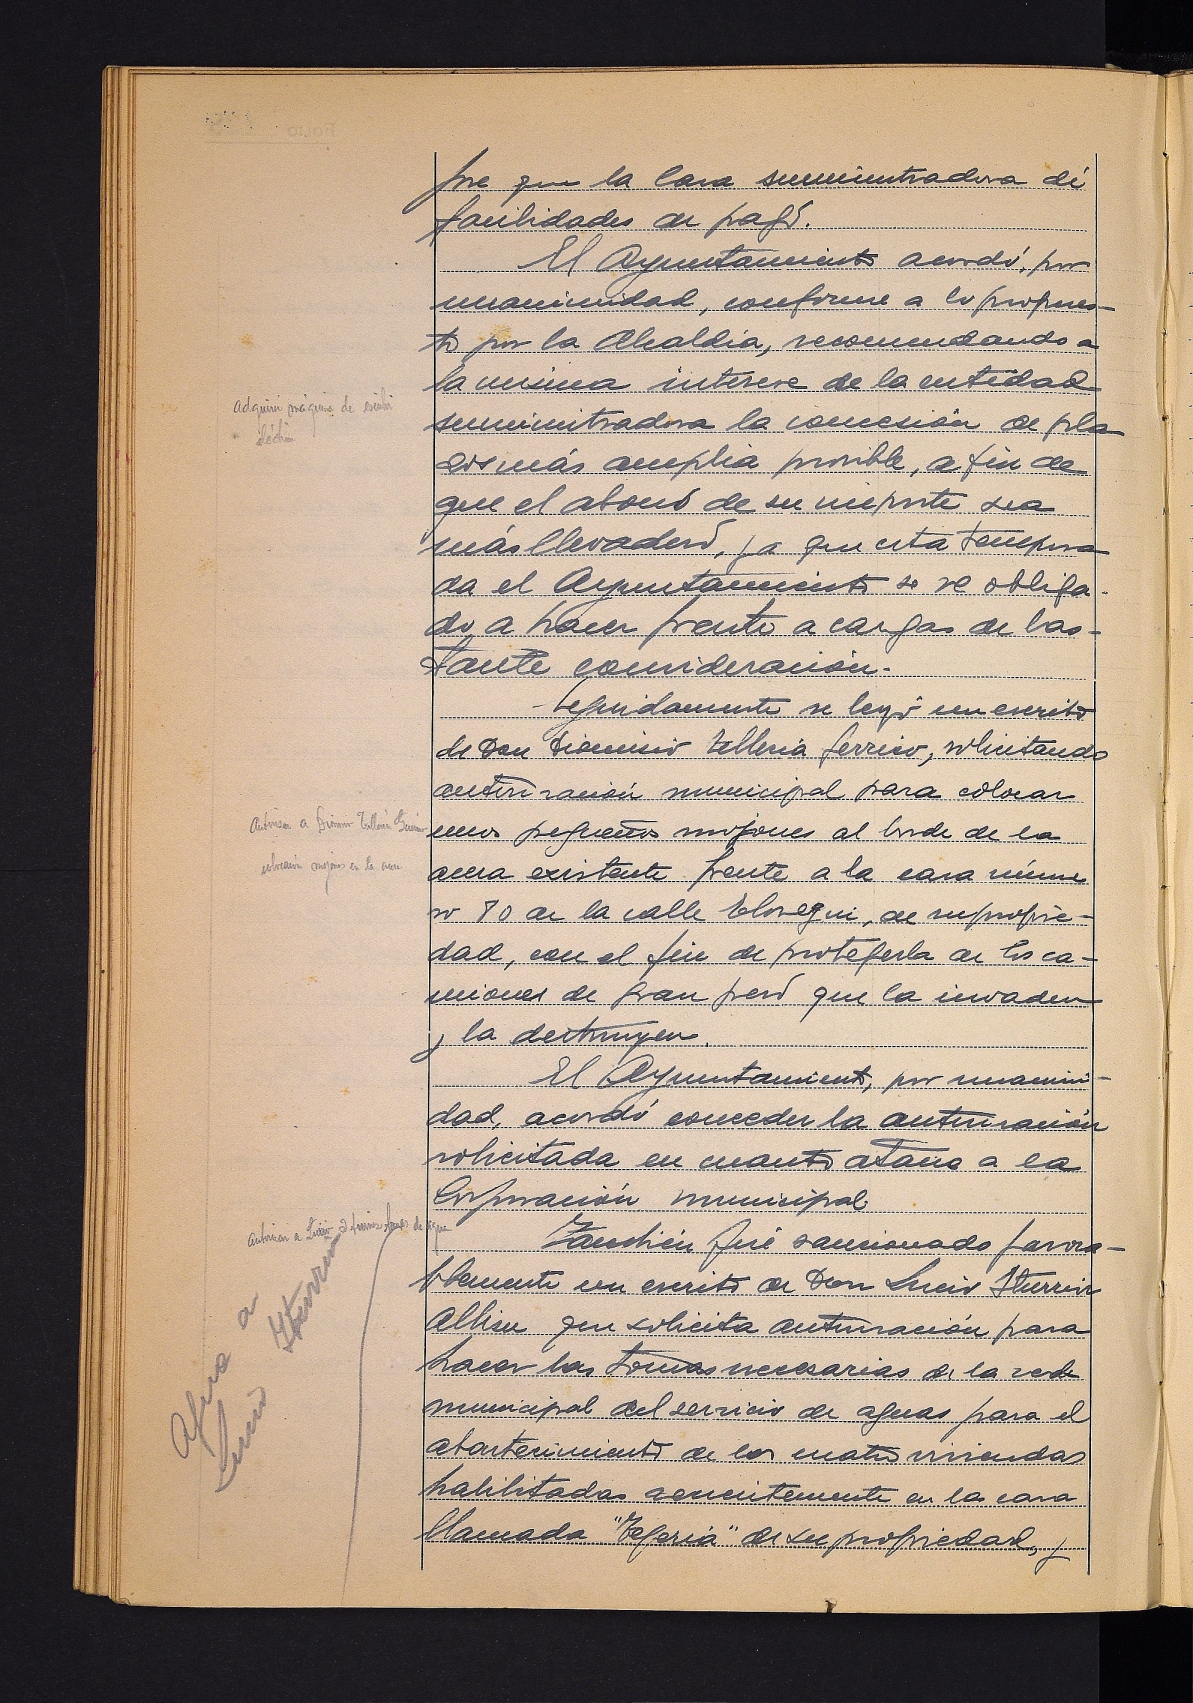 pre que la Casa suministradora dé
facilidades de pago.
El Ayuntamiento acordó, por
unanimidad, conforme a lo propues-
to por la Alcaldía, recomendando a
la misma interese de la entidad
suministradora la concesión de pla
zos más amplia posible, a fin de
que el abono de su importe sea
más llevadero, ya que esta tempora
da el Ayuntamiento se ve obliga-
do a hacer frente a cargas de bas-
tante consideración.
Seguidamente se leyó un escrito
de Don Dionisio Telleria Gerrico, solicitando
autorización municipal para colocar
unos pequeños mojones al borde de la
acera existente frente a la casa núme
ro 80 de la calle Elosegui, de su propie-
dad, con el fin de protegerla de los ca-
miones de gran peso que la invaden
y la destruyen.
El Ayuntamiento, por unanimi-
dad, acordó conceder la autorización
solicitada en cuanto atañe a la
Corporación municipal.
También fué sancionado favora-
blemente un escrito de Don Lucio Iturrioz
Albisu que solicita autorización para
hacer las tomas necesarias de la rede
municipal del servicio de aguas para el
abastecimiento de las cuatro viviendas
habilitadas recientemente en las casa
llamada "Tejeria" de su propiedad, y
adquirir máquina de escribir
Autorizan a Dionisio Telleria
colocación mojones en la acera
Autorizan a Lucio tomas de agua
a Iturrioz
Lucio
FOLIO